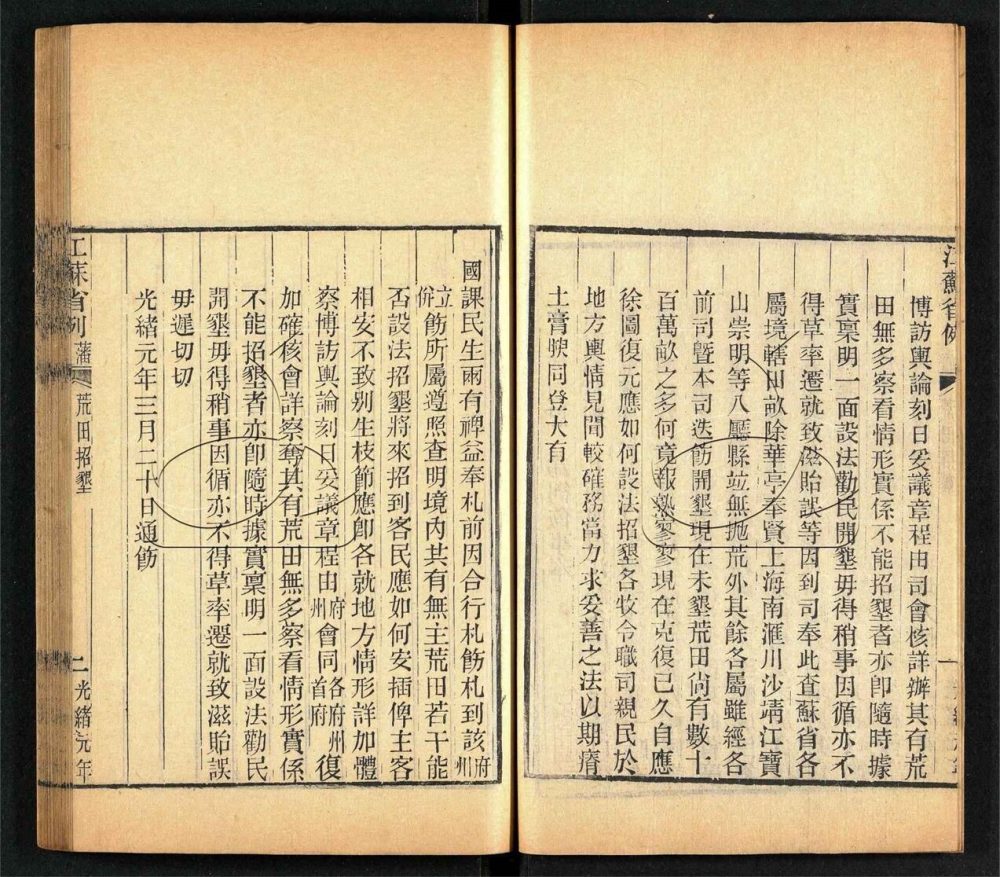 江蘇省例
博訪輿論刻日妥議章程由司會核詳辦其有荒
田無多察看情形實係不能招墾者亦卽隨時據
實稟明一面設法勸民開墾毋得稍事因循亦不
得草率遷就致滋貽誤等因到司奉此查蘇省各
屬境轄田畝除華亭奉賢上海南滙川沙靖江寶
山崇明等八廳縣竝無拋荒外其餘各屬雖經各
前司曁本司迭飭開墾現在未墾荒田尙有數十
百萬畝之多何竟報熟寥寥現在克復已久自應
徐圖復元應如何設法招墾各牧令職司親民於
地方輿情見聞較確務當力求妥善之法以期瘠
土膏腴同登大有
國課民生兩有裨益奉札前因合行札飭札到該府州
立併飭所屬遵照查明境內共有無主荒田若干能
否設法招墾將來招到客民應如何安插俾主客
相安不致別生枝節應卽各就地方情形詳加體
察博訪輿論刻日妥議章程由府州會同各府州首府復
加確核會詳察奪其有荒田無多察看情形實係
不能招墾者亦卽隨時據實稟明一面設法勸民
開墾毋得稍事因循亦不得草率遷就致滋貽誤
毋遲切切
光緒元年三月二十日通飭
江蘇省例 藩 荒田招墾 二 光緒元年